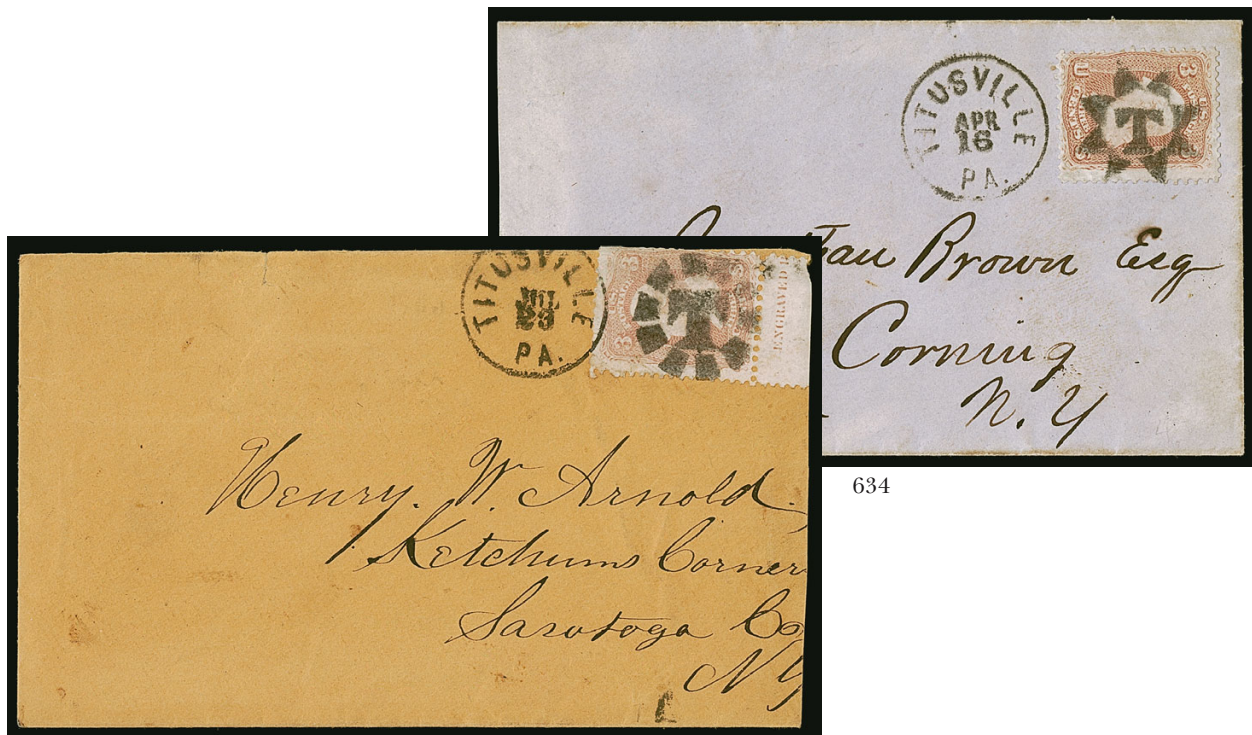 TITUSVILLE
APR
16
PA.
U 3
T
Brown Esq
Corning
N. Y
634
TITUSVILLE
JUL
23
PA.
3
T
ENGRAVED
Henry. W. Arnold.
Ketchums Corner
Saratoga Co
N Y